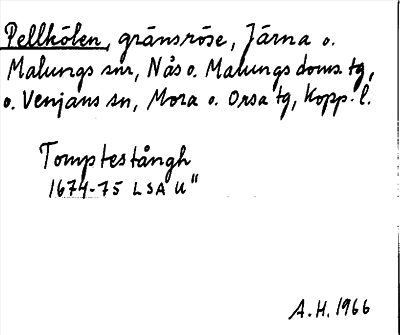 Pellkölen, gränsröse, Järna o.
Malungs snr, Nås o. Malungs doms. tg,
o. Venjans sn, Mora o. Orsa tg, Kopp. l.
Tomptestångh
1674-75 LSA U"
A.H. 1966